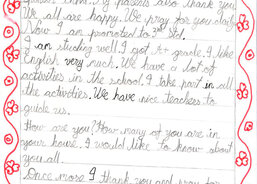 parents also thank you.
We all are happy. We pray for you daily.
Now I am promoted to 2nd Std.
I am studing well. I got A+ grade. I like
English very much. We have a lot of
activities in the school. I take part in all
the activities. We have nice teachers to
guide us.
How are you? How many of you are in
your house. I would like to know about
you all.
Once more I thank you and pray for